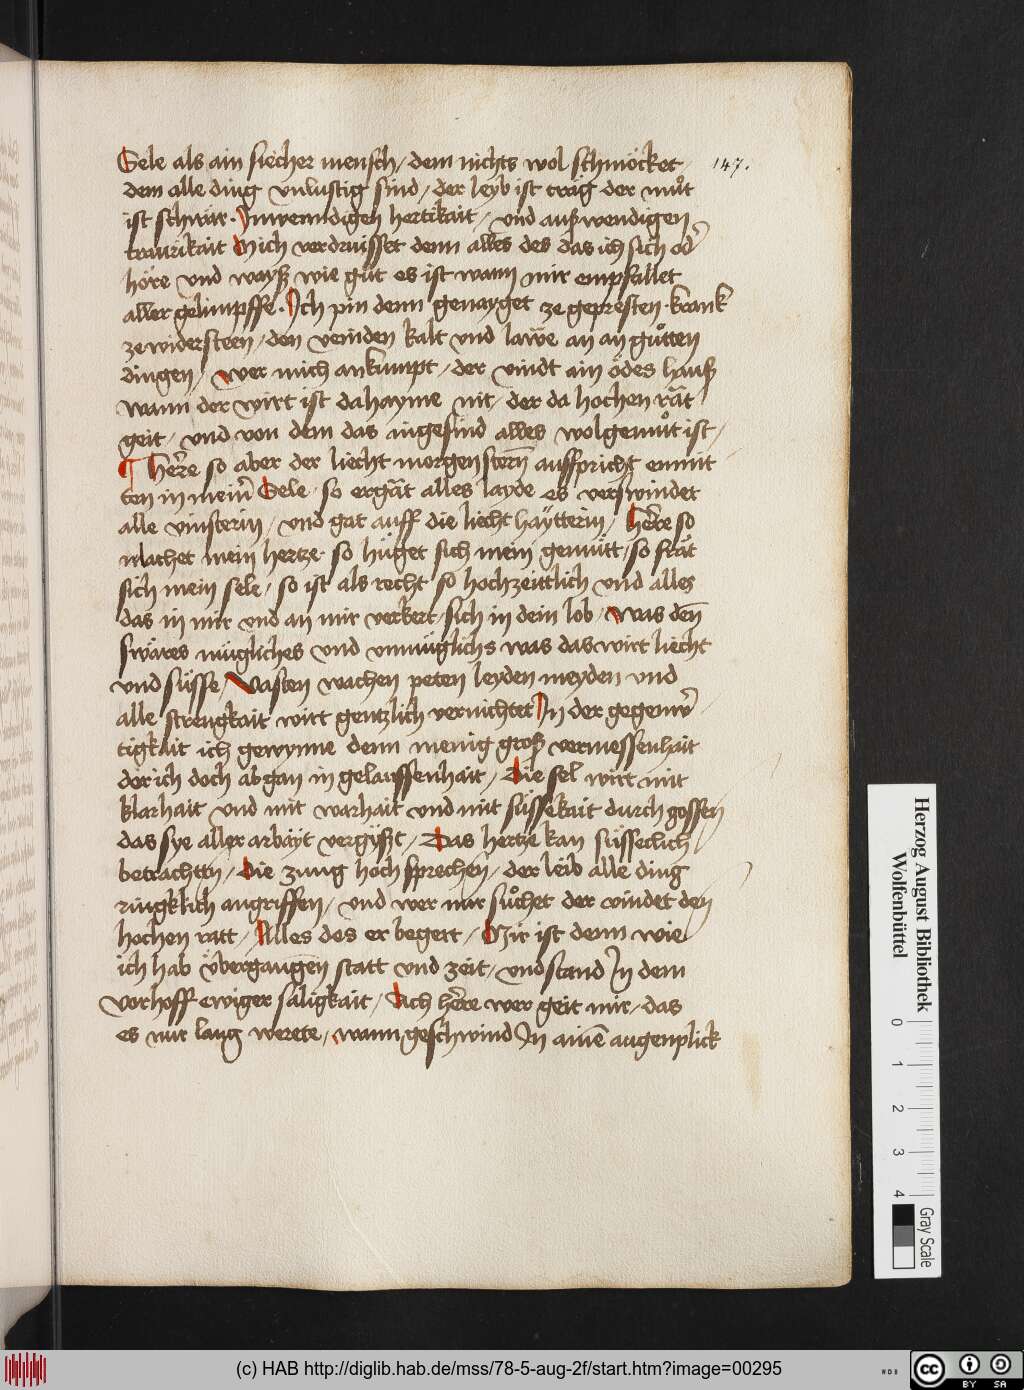 Sele als ain siecher mensch / dem nichts wol schmöcket 147.
dem alle ding vnlustig sind / der leyb ist träg der můt
ist schwär. Inwenndigen hertikait / vnd außwendigen
traurikait Mich verdruisset denn alles des das ich sich od̄
höre vnd wayß wie gůt es ist wann mir empfallet
aller gelimpffe. Ich pin denn genayget ze gepresten. krank
ze widersteen / den veinden kalt vnd lawe an an gůtten
dingen / wer mich ankumpt / der vindt ain ödes hauß
wann der wirt ist dahayme nit / der da hochen rät
geit / vnd von dem das ingesind alles wolgemůt ist /
¶ Here so aber der liecht morgenstern̄ auffpricht enmit
ten in mein̄ Sele. so ergät alles layde es verswindet
alle vinsterin / vnd gat auff die liecht haÿtterin / here so
machet mein hertze so hüget sich mein gemütt / so frät
sich mein sele / so ist als recht so hochzeittlich vnd alles
das in mir vnd an mir verkert sich in dein lob / was den̄
swäres mügliches vnd vnmüglichs was das wirt liecht
vnd süsse / Vasten wachen peten leyden meyden vnd
alle strengkait wirt gentzlich vernichtet In der gegenw̄
tigkait ich gewynne denn menig groß vermessenhait
der ich doch abgan in gelaussenhait / Die sel wirt mit
klarhait vnd mit warhait vnd mit süssekait durch gossen
das sye aller arbäyt vergÿszt / Das hertze kan süsseclich
betrachttn / Die zung hoch sprechen / der leib alle ding
ringklich angriffen / vnd wer mir sůchet der vindet den
hochen ratt / Alles des er begert / Mir ist denn wie
ich hab v̈bergangen statt vnd zeit / vnd stand In dem
vorhoff ewiger säligkait / Ach here wer geit mir / das
es nur lang werete / wann geschwind In aine͂ augenplick
Herzog August Bibliothek
Wolfenbüttel
0 1 2 3 4
Gray Scale
(c) HAB http://diglib.hab.de/mss/78-5-aug-2f/start.htm?image=00295
cc BY SA